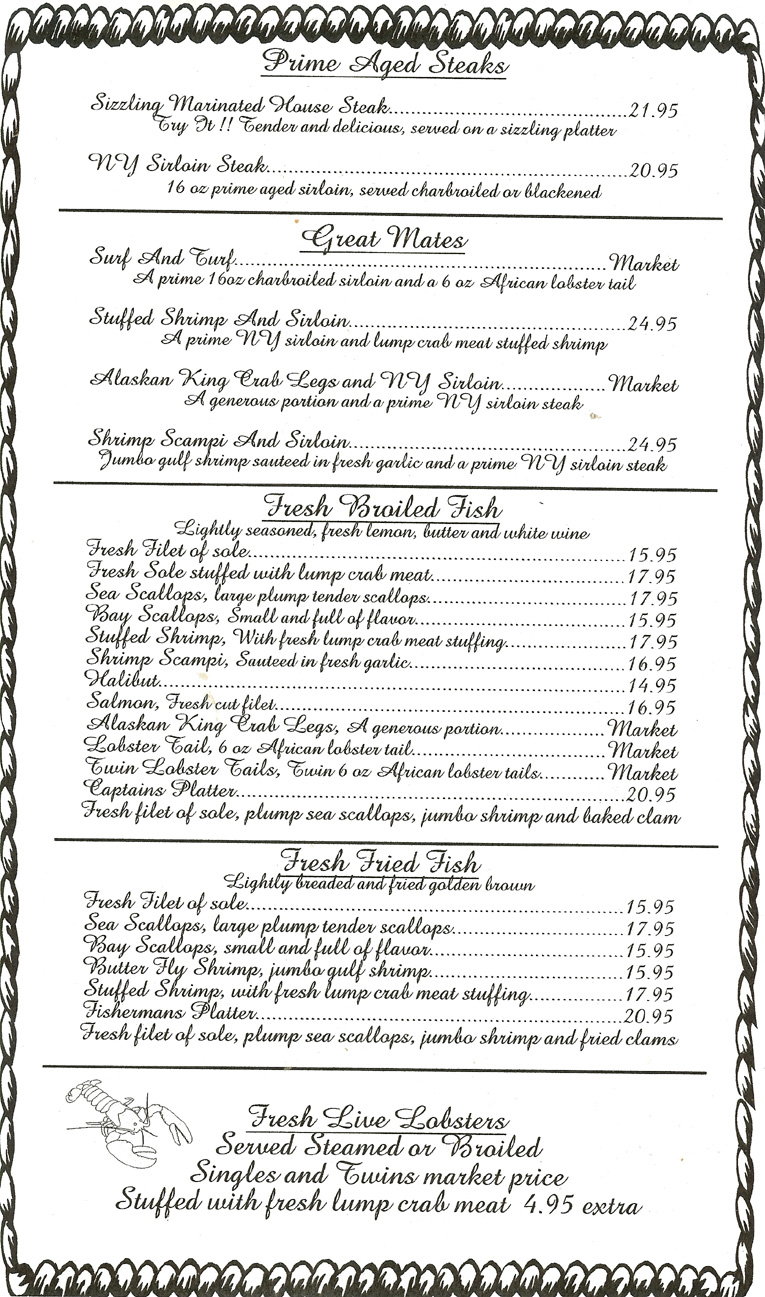 Prime Aged Steaks
Sizzling Marinated House Steak..............................21.95
Try It !! Tender and delicious, served on a sizzling platter
NY Sirloin Steak..............................20.95
16 oz prime aged sirloin, served charbroiled or blackened
Great Mates
Surf And Turf..............................Market
A prime 16oz charbroiled sirloin and a 6 oz African lobster tail
Stuffed Shrimp And Sirloin..............................24.95
A prime NY sirloin and lump crab meat stuffed shrimp
Alaskan King Crab Legs and NY Sirloin...............Market
A generous portion and a prime NY sirloin steak
Shrimp Scampi And Sirloin..............................24.95
Jumbo gulf shrimp sauteed in fresh garlic and a prime NY sirloin steak
Fresh Broiled Fish
Lightly seasoned, fresh lemon, butter and white wine
Fresh Filet of sole..............................15.95
Fresh Sole stuffed with lump crab meat....................17.95
Sea Scallops, large plump tender scallops....................17.95
Bay Scallops, Small and full of flavor....................15.95
Stuffed Shrimp, With fresh lump crab meat stuffing...............17.95
Shrimp Scampi, Sauteed in fresh garlic....................16.95
Halibut..............................14.95
Salmon, Fresh cut filet..............................16.95
Alaskan King Crab Legs, A generous portion...............Market
Lobster Tail, 6 oz African lobster tail....................Market
Twin Lobster Tails, Twin 6 oz African lobster tails..........Market
Captains Platter..............................20.95
Fresh filet of sole, plump sea scallops, jumbo shrimp and baked clam
Fresh Fried Fish
Lightly breaded and fried golden brown
Fresh Filet of sole..............................15.95
Sea Scallops, large plump tender scallops....................17.95
Bay Scallops, small and full of flavor....................15.95
Butter Fly Shrimp, jumbo gulf shrimp....................15.95
Stuffed Shrimp, with fresh lump crab meat stuffing...............17.95
Fishermans Platter..............................20.95
Fresh filet of sole, plump sea scallops, jumbo shrimp and fried clams
Fresh Live Lobsters
Served Steamed or Broiled
Singles and Twins market price
Stuffed with fresh lump crab meat 4.95 extra